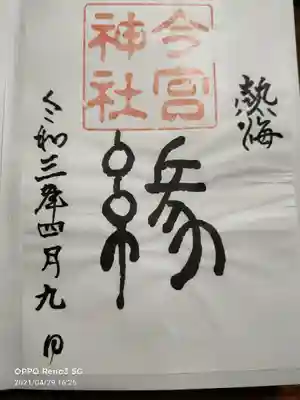 熱海
今宮
神社
縁
令和三年四月九日
OPPO Reno3 5G
2021/04/29 16:25